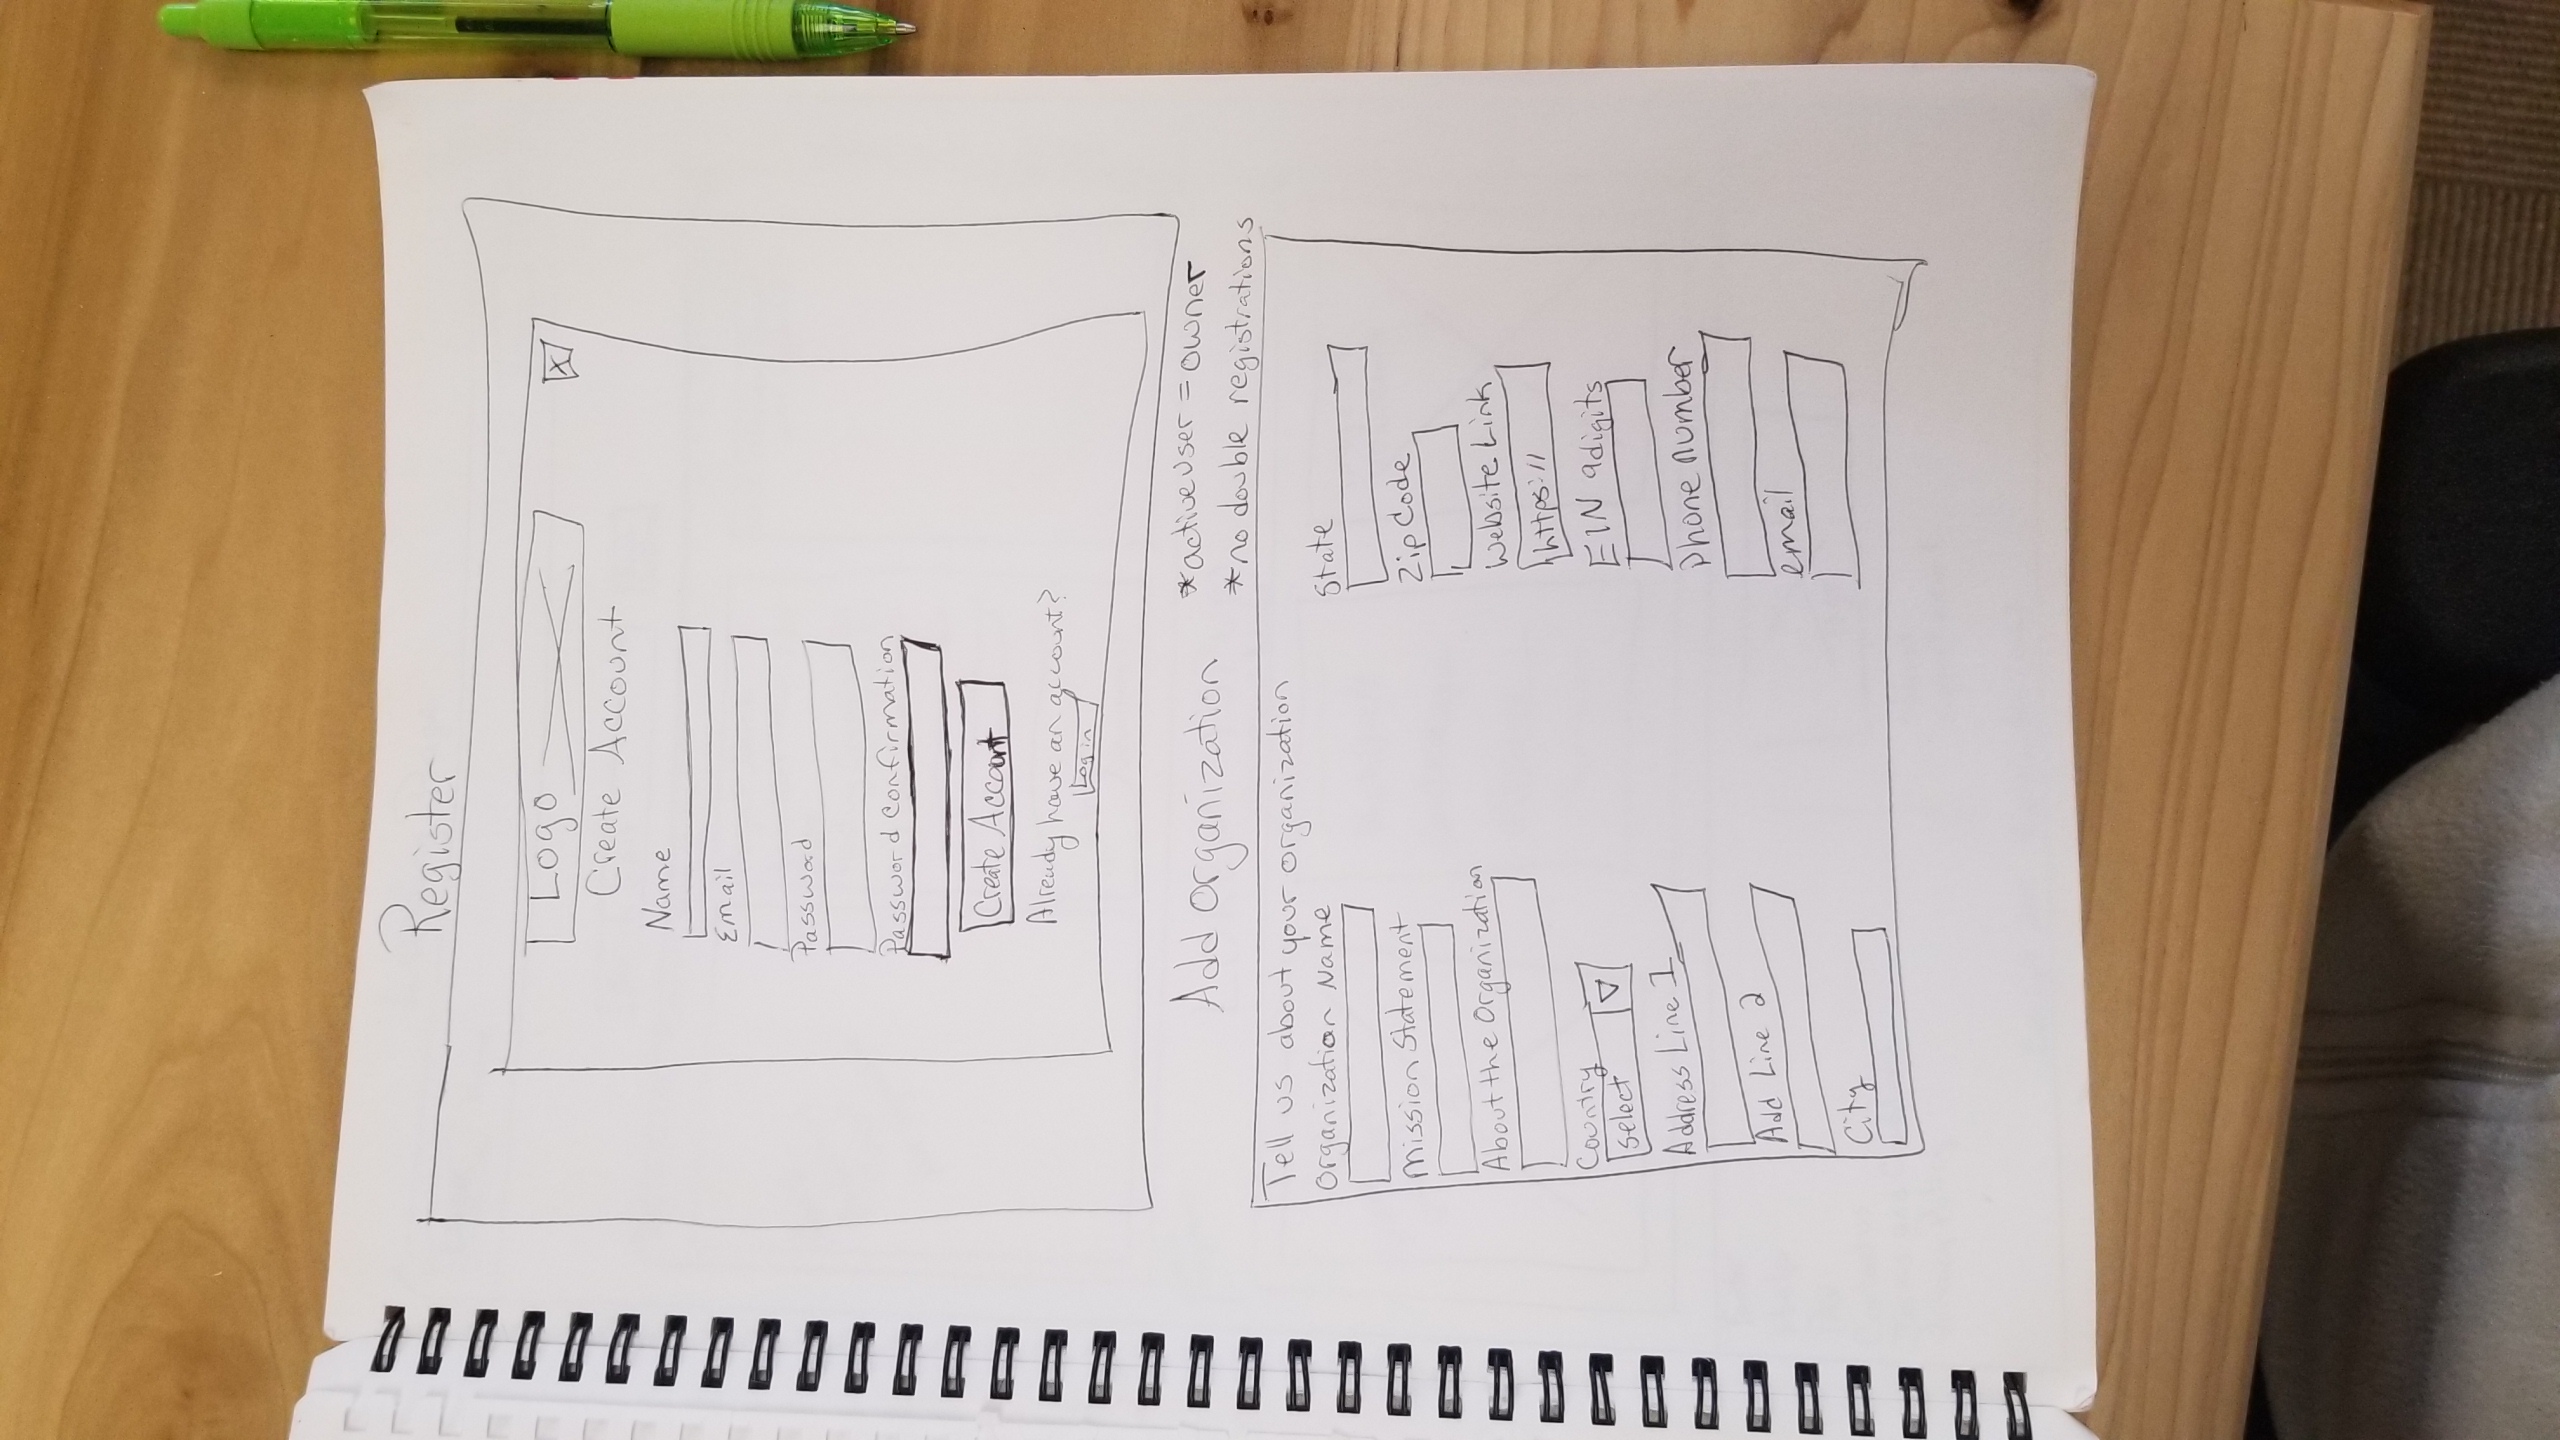 Register
Logo
X
Create Account
Name
Email
Password
Password confirmation
Create Account
Already have an account?
Login
Add Organization
*active user = owner
*no double registrations
Tell us about your organization
Organization Name
Mission Statement
About the Organization
Country
Select
Address Line 1
Add Line 2
City
State
Zip Code
Website Link
https://
EIN 9digits
Phone number
email